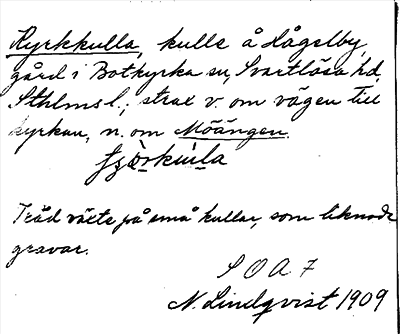 Kyrkkulla, kulle å Hågelby,
gård i Botkyrka sn, Svartlösa hd,
Sthlms l.; strax v. om vägen till
kyrkan, n. om Moängen.
Träd växte på små kullar, som liknade
gravar.
S O A 7
N. Lindqvist 1909